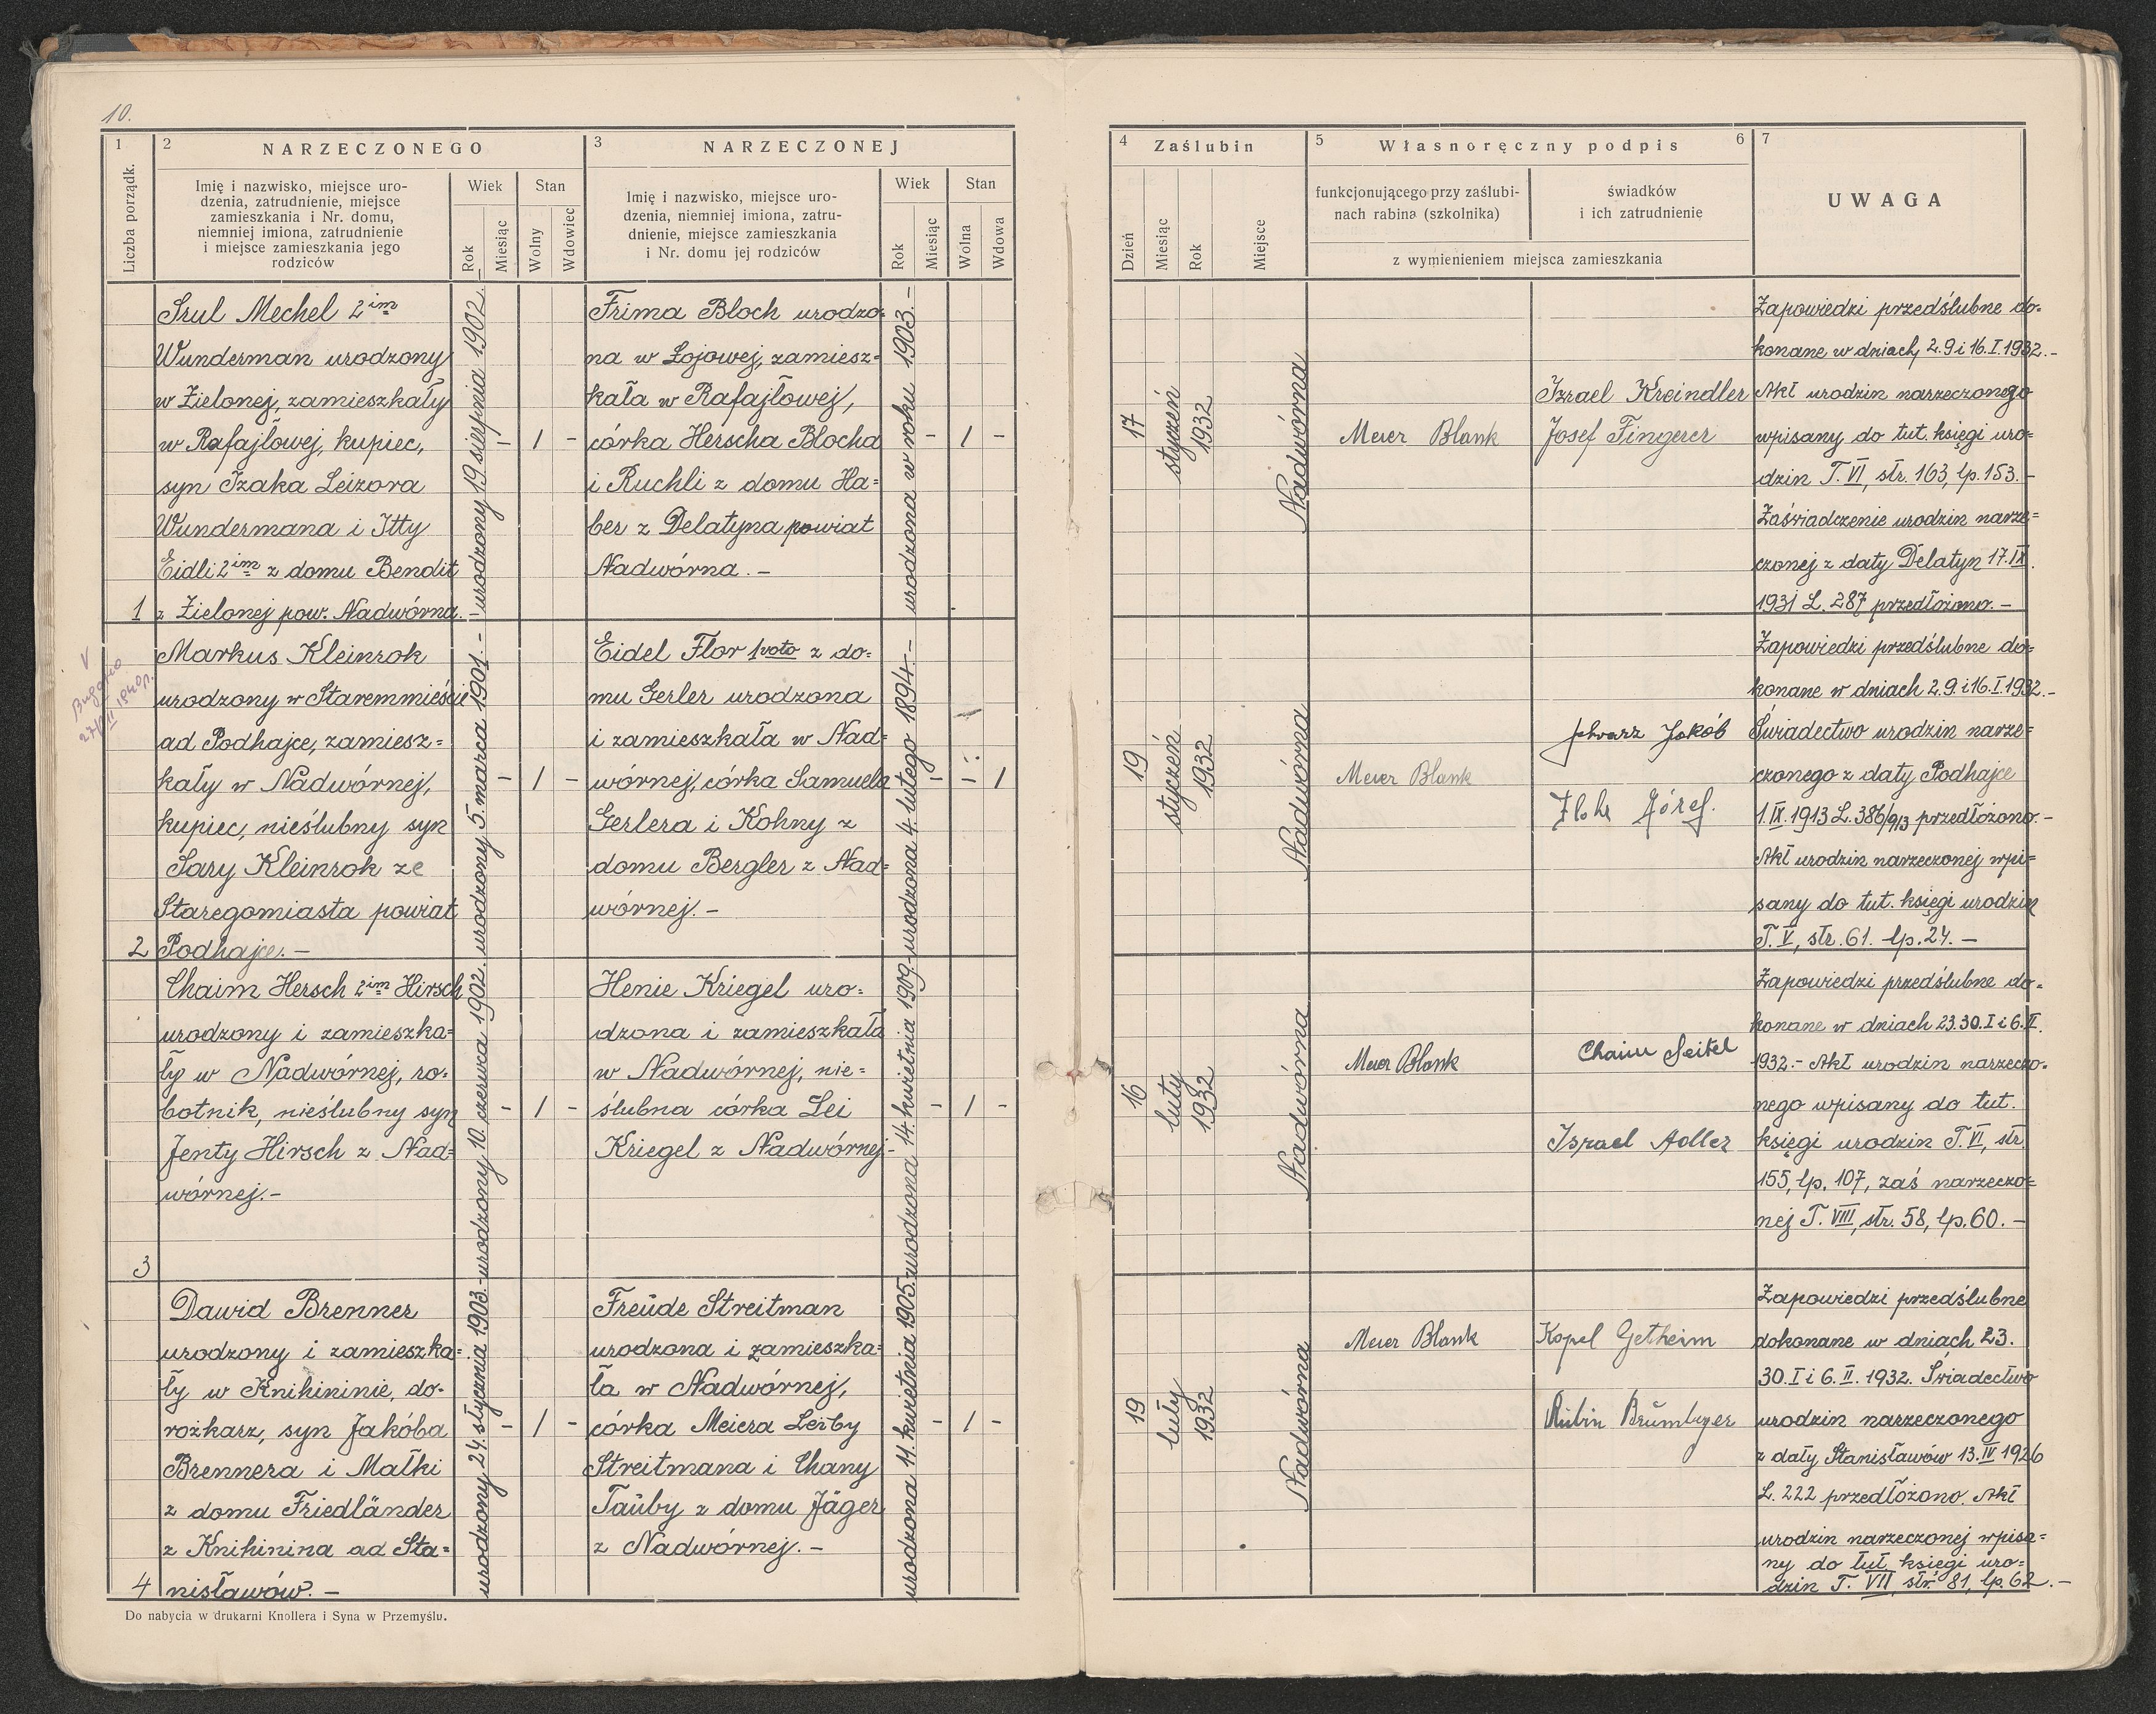 10.
1
2
NARZECZONEGO
3
NARZECZONEJ
Liczba porządk.
Imię i nazwisko, miejsce uro-
dzenia, zatrudnienie, miejsce
zamieszkania i Nr. domu,
niemniej imiona, zatrudnienie
i miejsce zamieszkania jego
rodziców
Wiek
Stan
Rok
Miesiąc
Wolny
Wdowiec
Imię i nazwisko, miejsce uro-
dzenia, niemniej imiona, zatru-
dnienie, miejsce zamieszkania
i Nr. domu jej rodziców
Wiek
Stan
Rok
Miesiąc
Wolna
Wdowa
4
Zaślubin
5
Własnoręczny podpis
6
7
Dzień
Miesiąc
Rok
Miejsce
funkcjonującego przy zaślubi-
nach rabina (szkolnika)
świadków
i ich zatrudnienie
z wymienieniem miejsca zamieszkania
UWAGA
1
Srul Mechel 2im
Wunderman urodzony
w Zielonej, zamieszkały
w Rafajłowej, kupiec,
syn Izaka Leizora
Wundermana i Itty
Eidli 2im z domu Bendit
z Zielonej pow. Nadwórna.-
urodzony 19 sierpnia 1902.
- 1 -
Frima Bloch urodzo=
na w Łojowej, zamiesz=
kała w Rafajłowej,
córka Herscha Blocha
i Ruchli z domu Ha=
ber z Delatyna powiat
Nadwórna.-
urodzona w roku 1903.-
- 1 -
17
styczeń
1932
Nadwórna
Meier Blank
Izrael Kreindler
Josef Fingerer
Zapowiedzi przedślubne do=
konane w dniach 2.9 i 16.I.1932.-
Akt urodzin narzeczonego
wpisany do tut. księgi uro=
dzin T. VI, str. 163, lp. 153.-
Zaświadczenie urodzin narze=
czonej z daty Delatyn 17.IX.
1931 L. 287 przedłożono.-
2
Markus Kleinrok
urodzony w Staremmieście
ad Podhajce, zamiesz=
kały w Nadwórnej,
kupiec, nieślubny syn
Sary Kleinrok ze
Staregomiasta powiat
Podhajce.-
urodzony 5. marca 1901.-
- 1 -
Eidel Flor 1voto z do=
mu Gerler urodzona
i zamieszkała w Nad=
wórnej, córka Samuela
Gerlera i Kohny z
domu Bergler z Nad=
wórnej.-
urodzona 4. lutego 1894.-
- - 1
19
styczeń
1932
Nadwórna
Meier Blank
Schwarz Jakób
Józef.
Zapowiedzi przedślubne do=
konane w dniach 2.9. i 16.I.1932.-
Świadectwo urodzin narze=
czonego z daty Podhajce
1.IX.1913 L. 386/913 przedłożono.-
Akt urodzin narzeczonej wpi=
sany do tut. księgi urodzin
T. V, str. 61. lp. 24.-
3
Chaim Hersch 2im Hirsch
urodzony i zamieszka=
ły w Nadwórnej, ro=
botnik, nieślubny syn
Jenty Hirsch z Nad=
wórnej.-
urodzony 10. czerwca 1902.
- 1 -
Henie Kriegel uro=
dzona i zamieszkała
w Nadwórnej, nie=
ślubna córka Lei
Kriegel z Nadwórnej.-
urodzona 14. kwietnia 1909.-
- 1 -
16
luty
1932
Nadwórna
Meier Blank
Chaim Seitel
Israel Adler
Zapowiedzi przedślubne do=
konane w dniach 23.30.I i 6.II.
1932.- Akt urodzin narzeczo=
nego wpisany do tut.
księgi urodzin T. VI, str.
155, lp. 107, zaś narzeczo=
nej T. VIII, str. 58, lp. 60.-
4
Dawid Brenner
urodzony i zamieszka=
ły w Knihininie, do=
rożkarz, syn Jakóba
Brennera i Małki
z domu Friedländer
z Knihinina ad Sta=
nisławów.-
urodzony 24. stycznia 1903.-
- 1 -
Freude Streitman
urodzona i zamieszka=
ła w Nadwórnej,
córka Meiera Leiby
Streitmana i Chany
Tauby z domu Jäger
z Nadwórnej.-
urodzona 11. kwietnia 1905.
- 1 -
19
luty
1932
Nadwórna
Meier Blank
Kopel Getheim
Rubin
Zapowiedzi przedślubne
dokonane w dniach 23.
30.I i 6.II.1932. Świadectwo
urodzin narzeczonego
z daty Stanisławów 13.IV 1926
L. 222 przedłożono. Akt
urodzin narzeczonej wpisa=
ny do tut. księgi uro=
dzin T. VII, str. 81, lp. 62.-
Do nabycia w drukarni Knollera i Syna w Przemyślu.